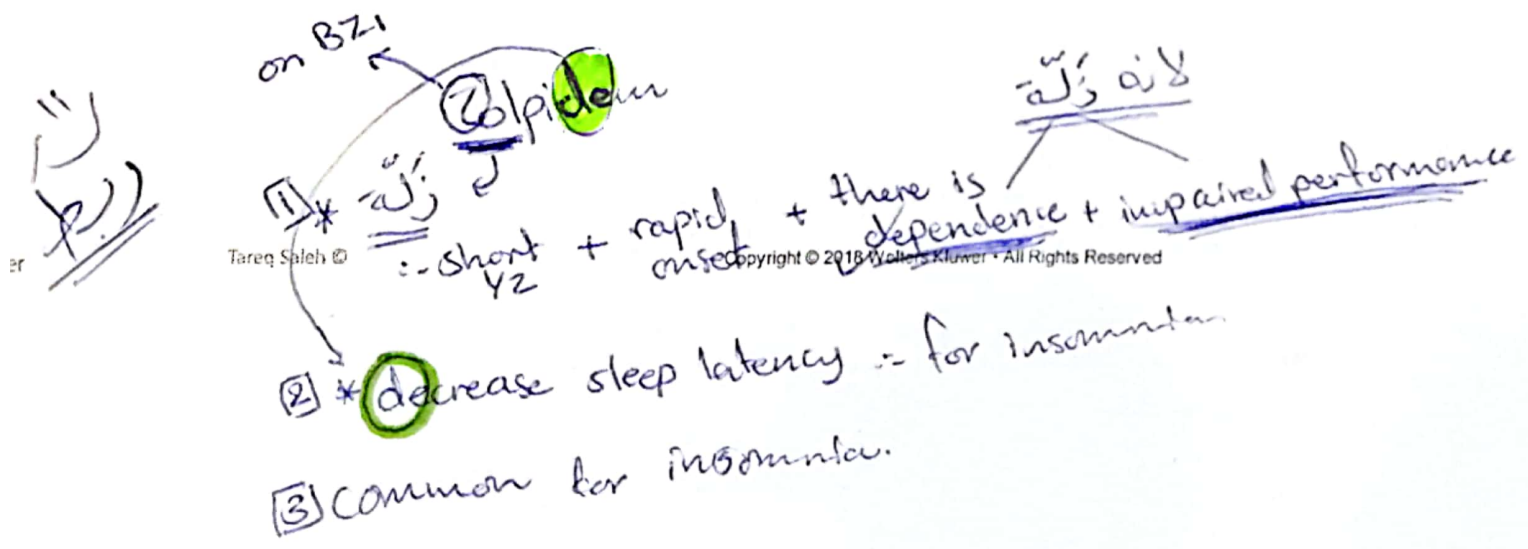 on BZ1
Zolpidem
لانه زَلّة
1 * زَلّة
∴ short + rapid + there is
Y2 onset dependence + impaired performance
er Tareq Saleh © Copyright © 2018 Wolters Kluwer • All Rights Reserved
2 * decrease sleep latency ∴ for insomnia
3 Common for insomnia.